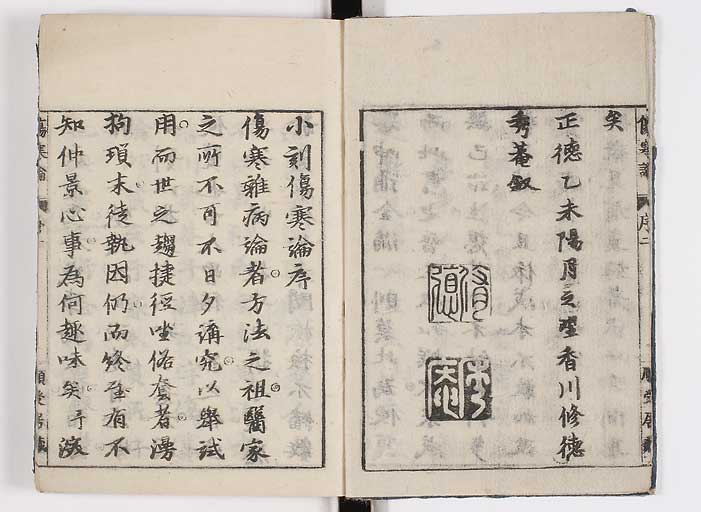 矣
正德乙未陽月之望香川修德
秀菴叙
小刻傷寒論序
傷寒雜病論者方法之祖醫家
之所不可不日夕講究以舉試
用而世之趨捷徑坐俗套者湯
拘瑣末徒執因仍而終至有不
知仲景心事為何趣味矣于激
傷寒論
序二
傷寒論